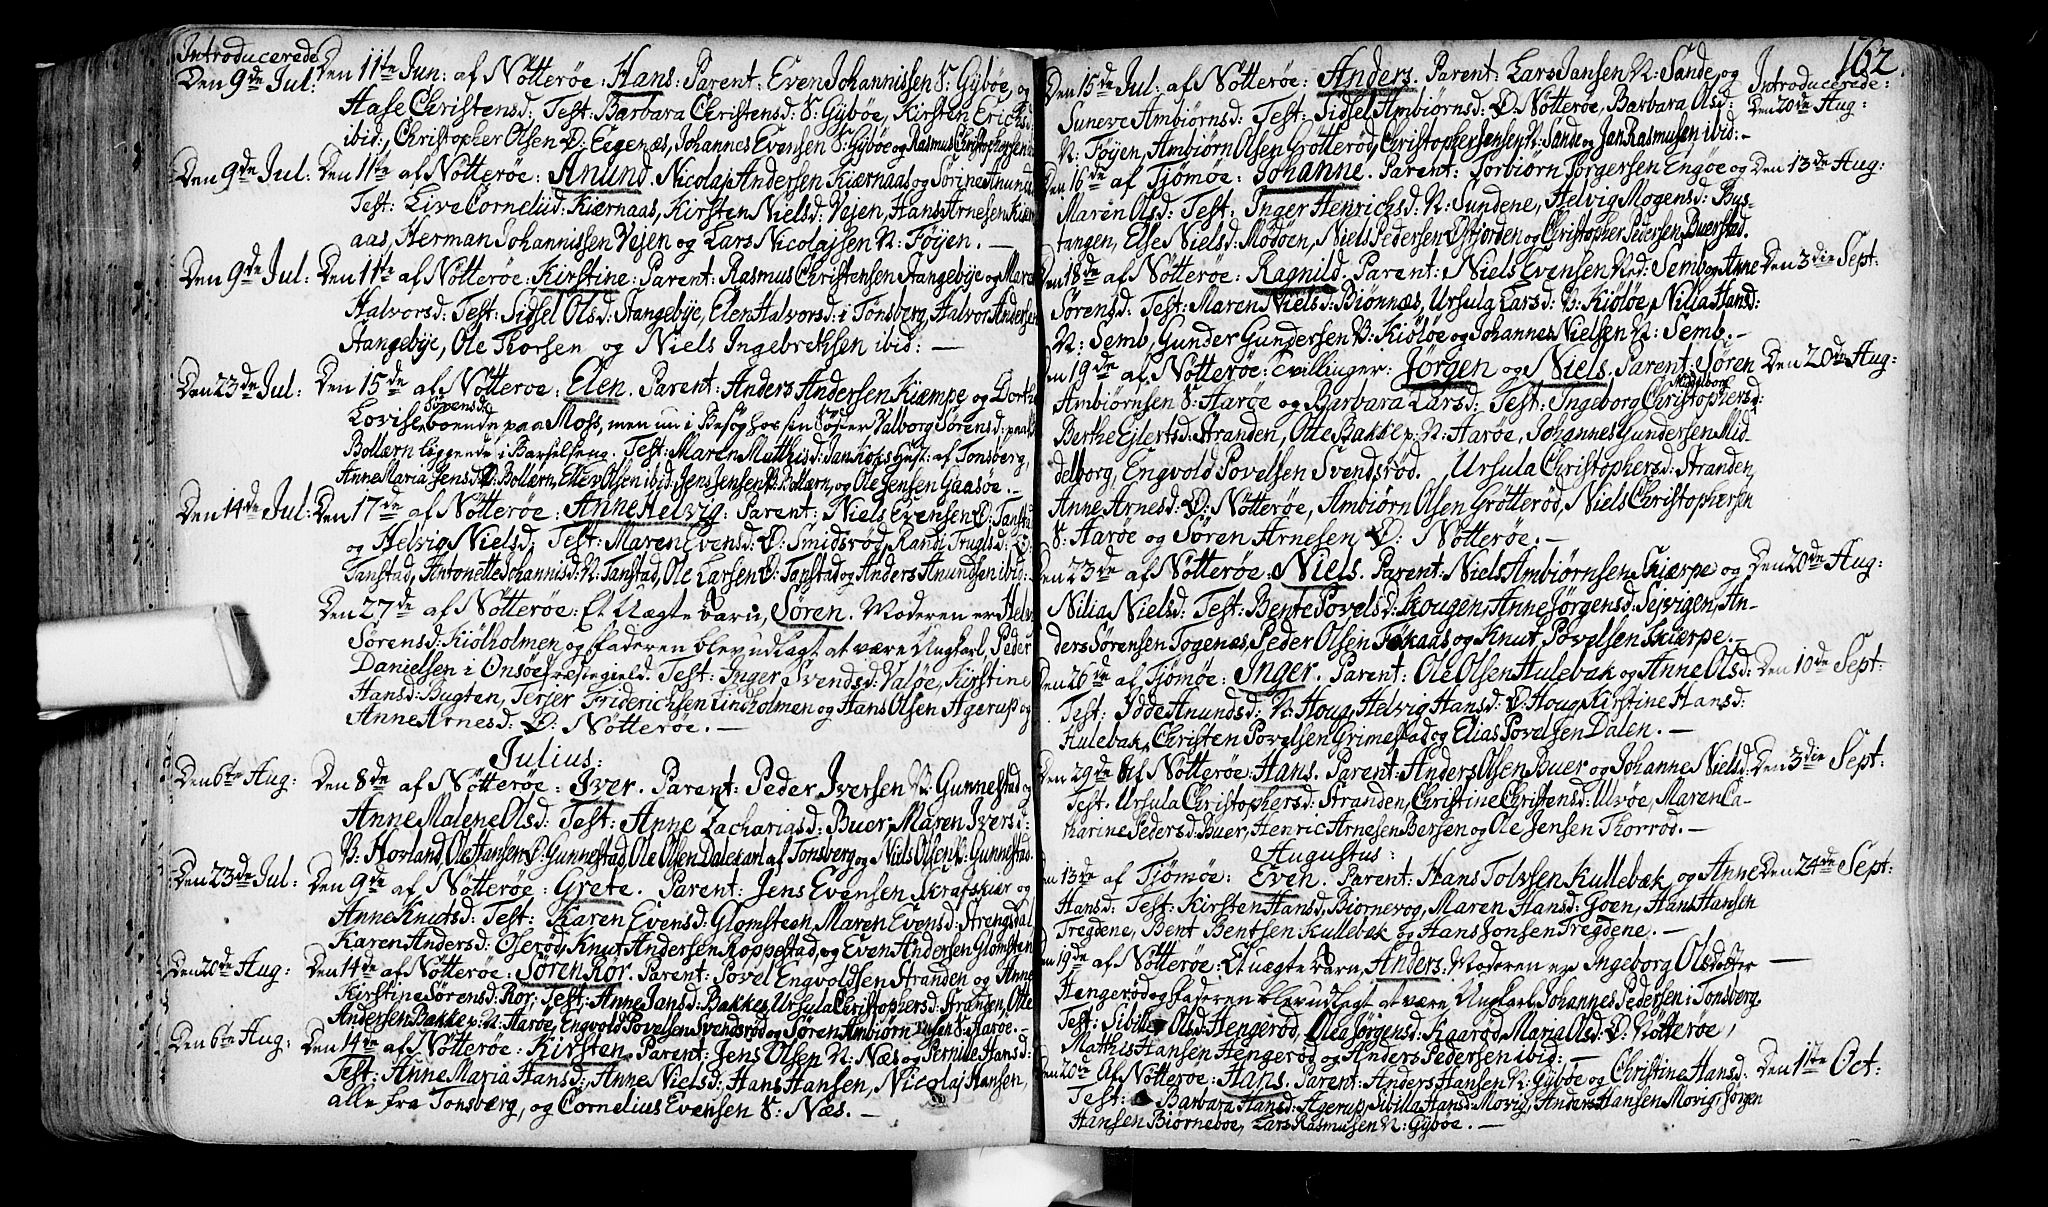 Introducerede
Den 9de Jul: Den 11te Jun: af Nötterøe: Hans. Parent: Even Johannissen S: Gybøe, og
Hase Christensd: Test: Barbara Christensd: S: Gybøe, Kirsten Erichsd:
ibid, Christopher Olsen Ø: Eegenæs, Johannes Evensen S: Gybøe og Rasmus Christophersen
Den 9de Jul: Den 11te af Nötterøe: Anund. Nicolaj Andersen Kiærnaas og Sörine Anundsd
Test: Live Cornelid: Kiærnaas, Kirsten Nielsd: Vejen, Hans Arnesen Kiærn-
aas, Herman Johannissen Vejen og Lars Nicolajsen N: Föyen. —
Den 9de Jul: Den 11te af Nötterøe: Kirstine: Parent: Rasmus Christensen Stangebÿe og Maren
Halvorsd: Test: Sidsel Olsd: Stangebÿe, Elen Halvorsd: i Tönsberg, Halvor Andersen
Stangebÿe, Ole Thorsen og Niels Ingebretsen ibid: —
Den 23de Jul: Den 15de af Nötterøe: Elen. Parent: Anders Andersen Kiæmpe og Dorthe
Lovise Sörensd: boende paa Moss, men nu i Besög hos sin Söster Valborg Sörensd: paa
Bollærn liggende i Barselseng. Test: Maren Matthisd: Jan Koks Hust: af Tönsberg,
Anne Maria Jensd: Ø: Bollærn, Ellev Olsen ibid, Jens Jensen V: Bollærn, og Ole Jensen Gaasöe. —
Den 14de Jul: Den 17de af Nötterøe: Anne Helvig: Parent: Niels Evensen Ø: Tanstad
og Helvig Nielsd: Test: Maren Evensd: Ø: Smidsröd, Randi Truglsd: Ø:
Tanstad, Antonette Johannisd: N: Tanstad, Ole Larsen Ø: Tanstad og Anders Anundsen ibid: —
Den 27de af Nötterøe: Et Uægte barn, Sören. Moderen er Helvig
Sörensd: Kiölholmen og Faderen blev udlagt at være Ungkarl, Peder
Danielsen i Onsöe Præstegield. Test: Inger Svendsd: Valöe, Kirstine
Hansd: Bugten, Terser Friderichsen Lindholmen og Hans Olsen Agerup og
Anne Arnesd: Ø: Nötterøe. —
Julius:
Den 6te Aug: Den 8de af Nötterøe: Iver. Parent: Peder Iversen V: Gunnestad og
Anne Malene Olsd: Test: Anne Zachariasd: Buer, Maren Iversd:
V: Hovland, Ole Hansen Ø: Gunnestad, Ole Olsen Dalekarl af Tönsberg og Niels Olsen V: Gunnestad.
Den 23de Jul: Den 9de af Nötterøe: Grete. Parent: Jens Evensen Skrafskiær og
Anne Knutsd: Test: Karen Evensd: Glomsteen, Maren Evensd: Strengsdal
Karen Andersd: Oseröd, Knut Andersen Roppestad, og Even Andersen Glomsteen
Den 20de Aug: Den 14de af Nötterøe: Sören Rör. Parent: Povel Engvoldsen Stranden og Anne
Kirstine Sörensd: Rör: Test: Anne Jansd: Bakke, Ursula Christophersd: Stranden, Otte
Andersen Bakke p: N: Haröe, Engvold Povelsen Svendsröd og Sören Ambiörnsen S: Haröe. —
Den 6te Aug: Den 14de af Nötterøe: Kirsten. Parent: Jens Olsen N: Næs og Pernille Hansd:
Test: Anne Maria Hansd: Anne Nielsd: Hans Hansen, Nicolaj Hansen,
alle fra Tönsberg, og Cornelius Evensen S: Næs. —
162.
Introducerede:
Den 15de Jul: af Nötterøe: Anders. Parent: Lars Jansen N: Sande, og Den 20de Aug:
Suneve Ambiörnsd: Test: Sidsel Ambiörnsd: Ø: Nötterøe, Barbara Olsd:
N: Föyen, Ambiörn Olsen Grötteröd, Christopher Jensen N: Sande og Jan Rasmusen ibid: —
Den 16de af Tjömöe: Johanne. Parent: Torbiörn Torgersen Engöe og Den 13de Aug:
Maren Olsd: Test: Inger Henrichsd: N: Sundene, Helvig Mogensd: Bus-
tangen, Else Nielsd: Mödöen, Niels Pedersen Østjorden og Christopher Pedersen Buerstad.
Den 18de af Nötterøe: Ragnild. Parent: Niels Evensen Ned: Semb og Anne Den 3die Sept:
Sörensd: Test: Maren Nielsd: Biönnæs, Ursula Larsd: V: Kiölöe, Nilia Hansd:
N: Semb, Gunder Gundersen V: Kiölöe og Johannes Nielsen N: Semb. —
Den 19de af Nötterøe: Tvillinger: Jörgen og Niels. Parent: Sören Den 20de Aug:
Ambiörnsen S: Haröe og Barbara Larsd: Test: Ingeborg Christophersd: Middelborg
Berthe Ejlertsd: Stranden, Otte Bakke p: N: Haröe, Johannes Gundersen Mid-
delborg, Engvold Povelsen Svendsröd. Ursula Christophersd: Stranden,
Anne Arnesd: Ø: Nötterøe, Ambiörn Olsen Grötteröd, Niels Christophersen
S: Haröe og Sören Arnesen Ø: Nötterøe. —
Den 23de af Nötterøe: Niels. Parent: Niels Ambiörnsen Skierpe og Den 20de Aug:
Nilia Nielsd: Test: Bente Povelsd: Skougen, Anne Jörgensd: Sejvigen, An-
ders Sörensen Togenæs, Peder Olsen Fökaas og Knut Povelsen Skierpe. —
Den 26de af Tjömöe: Inger. Parent: Ole Olsen Hulebak og Anne Olsd: Den 10de Sept:
Test: Jödde Anundsd: N: Houg, Helvig Hansd: Ø: Houg, Kirstine Hansd:
Hulebak, Christen Povelsen Grimestad og Elias Povelsen Dalen. —
Den 29de af Nötterøe: Hans. Parent: Anders Olsen Buer og Johanne Nielsd: Den 3die Sept:
Test: Ursula Christophersd: Stranden, Christine Christensd: Ulvöe, Maren Ca-
tharine Pedersd: Buer, Henric Arnesen Bersen og Ole Jensen Thorröd. —
Augustus:
Den 13de af Tjömöe: Even. Parent: Hans Tolvsen Kullebæk og Anne Den 24de Sept:
Hansd: Test: Kirsten Hansd: Biörnevog, Maren Hansd: Goen, Hans Hansen
Tregdene, Bent Bentsen Kullebæk og Hans Jonsen Tregdene. —
Den 19de af Nötterøe: Et uægte barn, Anders. Moderen er Ingeborg Olsdotter —
Hengeröd og Faderen blev udlagt at være Ungkarl Johannes Pedersen i Tönsberg.
Test: Sibille Olsd: Hengeröd, Olea Jörgensd: Kaaröd, Maria Olsd: Ø: Nötterøe,
Mathis Hansen Hengeröd og Anders Pedersen ibid: —
Den 20de af Nötterøe: Hans. Parent: Anders Hansen N: Gyböe og Christine Hansd: Den 1ste Oct:
Test: Barbara Hansd: Agerup, Sibilla Hansd: Movig, Anders Hansen Movig, Jörgen
Hansen Biörneboe, Lars Rasmusen N: Gyböe. —